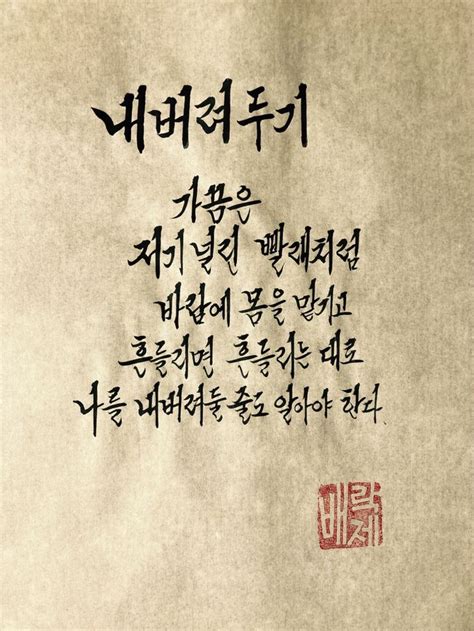 내버려두기
가끔은
저기 널린 빨래처럼
바람에 몸을 맡기고
흔들리면 흔들리는 대로
나를 내버려둘 줄도 알아야 한다.
배락제